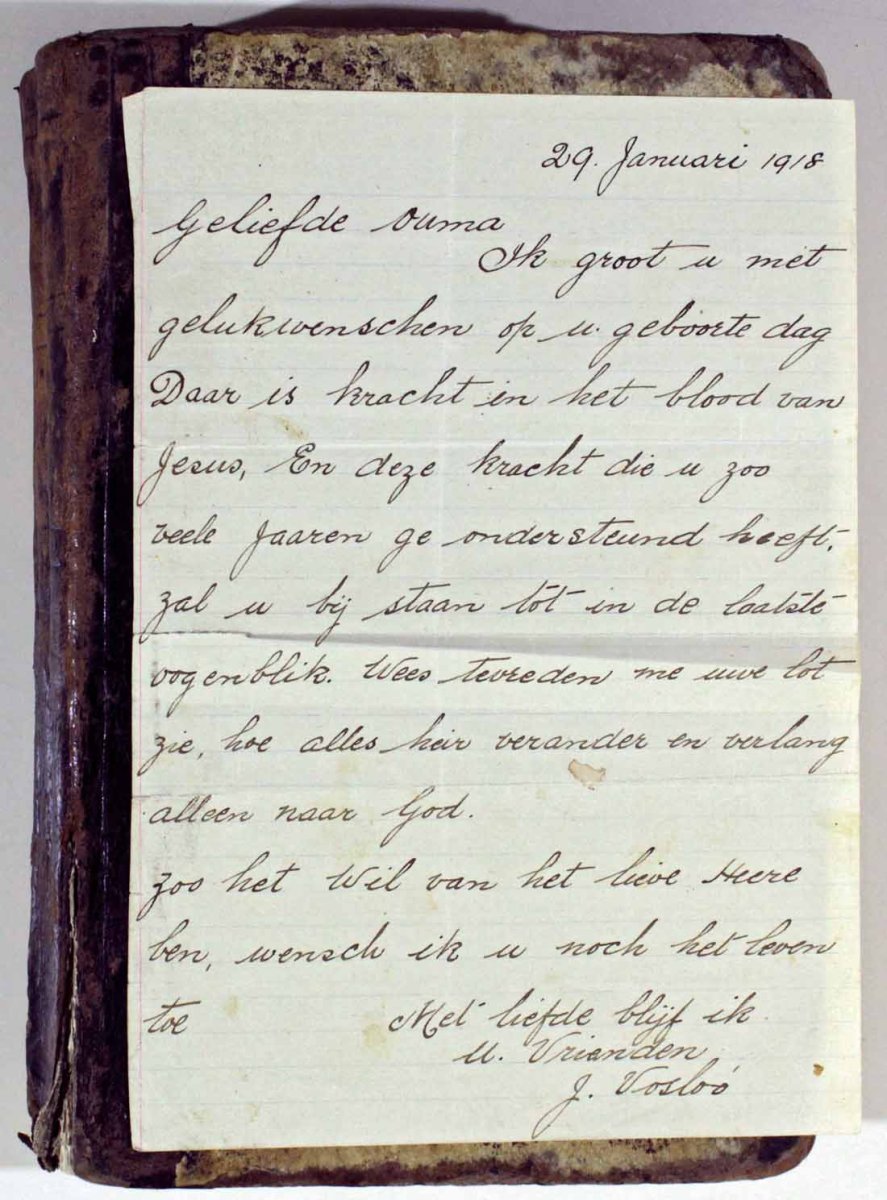 29. Januari 1918
Geliefde Ouma
Ik groot u met
gelukwenschen op u. geboorte dag
Daar is kracht in het blood van
Jesus, En deze kracht die u zoo
veele Jaaren ge ondersteund heeft,
zal u bij staan tot in de laatste
oogenblik. Wees tevreden me uwe lot
zie, hoe alles heir verander en verlang
alleen naar God.
zoo het Wil van het lieve Heere
ben, wensch ik u noch het leven
toe Met liefde blijf ik
U. Vrienden
J. Vosloo